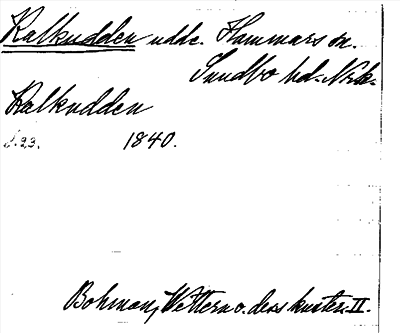 Kalkudden udde. Hammars sn.
Sundbo hd. Nrk.
Kalkudden
S. 23. 1840.
Bohman, Wettern o. dess kuster. II.